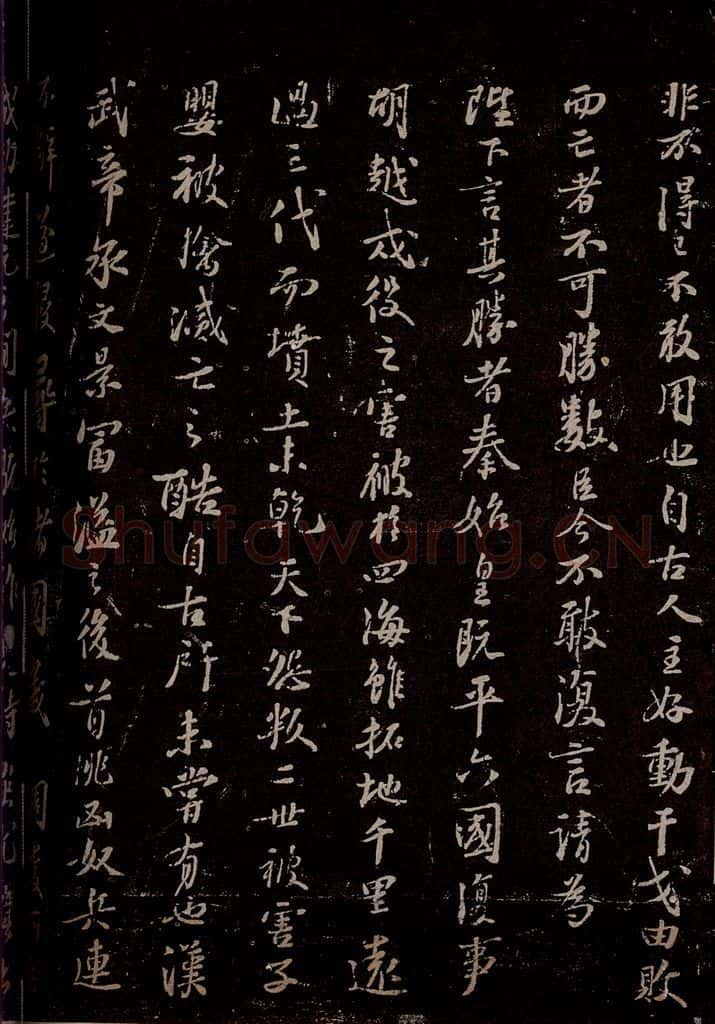 非不得已不敢用也自古人主好動干戈由敗
而亡者不可勝數臣今不敢復言請為
陛下言其勝者秦始皇既平六國復事
胡越戍役之害被於四海雖拓地千里遠
過三代而墳土未乾天下怨叛二世被害子
嬰被擒滅亡之酷自古所未嘗有也漢
武帝承文景富溢之後首挑匈奴兵連
不解遂侵尋於諸國歲
成功建元之間兵禍始作
Shufawang.CN